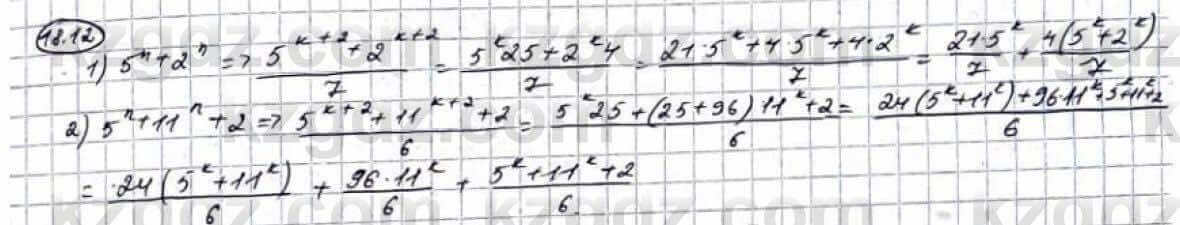 18.12
1) 5^n + 2^n => (5^(k+2) + 2^(k+2))/7 = (5^k 25 + 2^k 4)/7 = (21·5^k + 4·5^k + 4·2^k)/7 = (21·5^k)/7 + (4(5^k + 2^k))/7
2) 5^n + 11^n + 2 => (5^(k+2) + 11^(k+2) + 2)/6 = (5^k 25 + (25 + 96) 11^k + 2)/6 = (24(5^k + 11^k) + 96·11^k + 5^k + 11^k + 2)/6
= (24(5^k + 11^k))/6 + (96·11^k)/6 + (5^k + 11^k + 2)/6